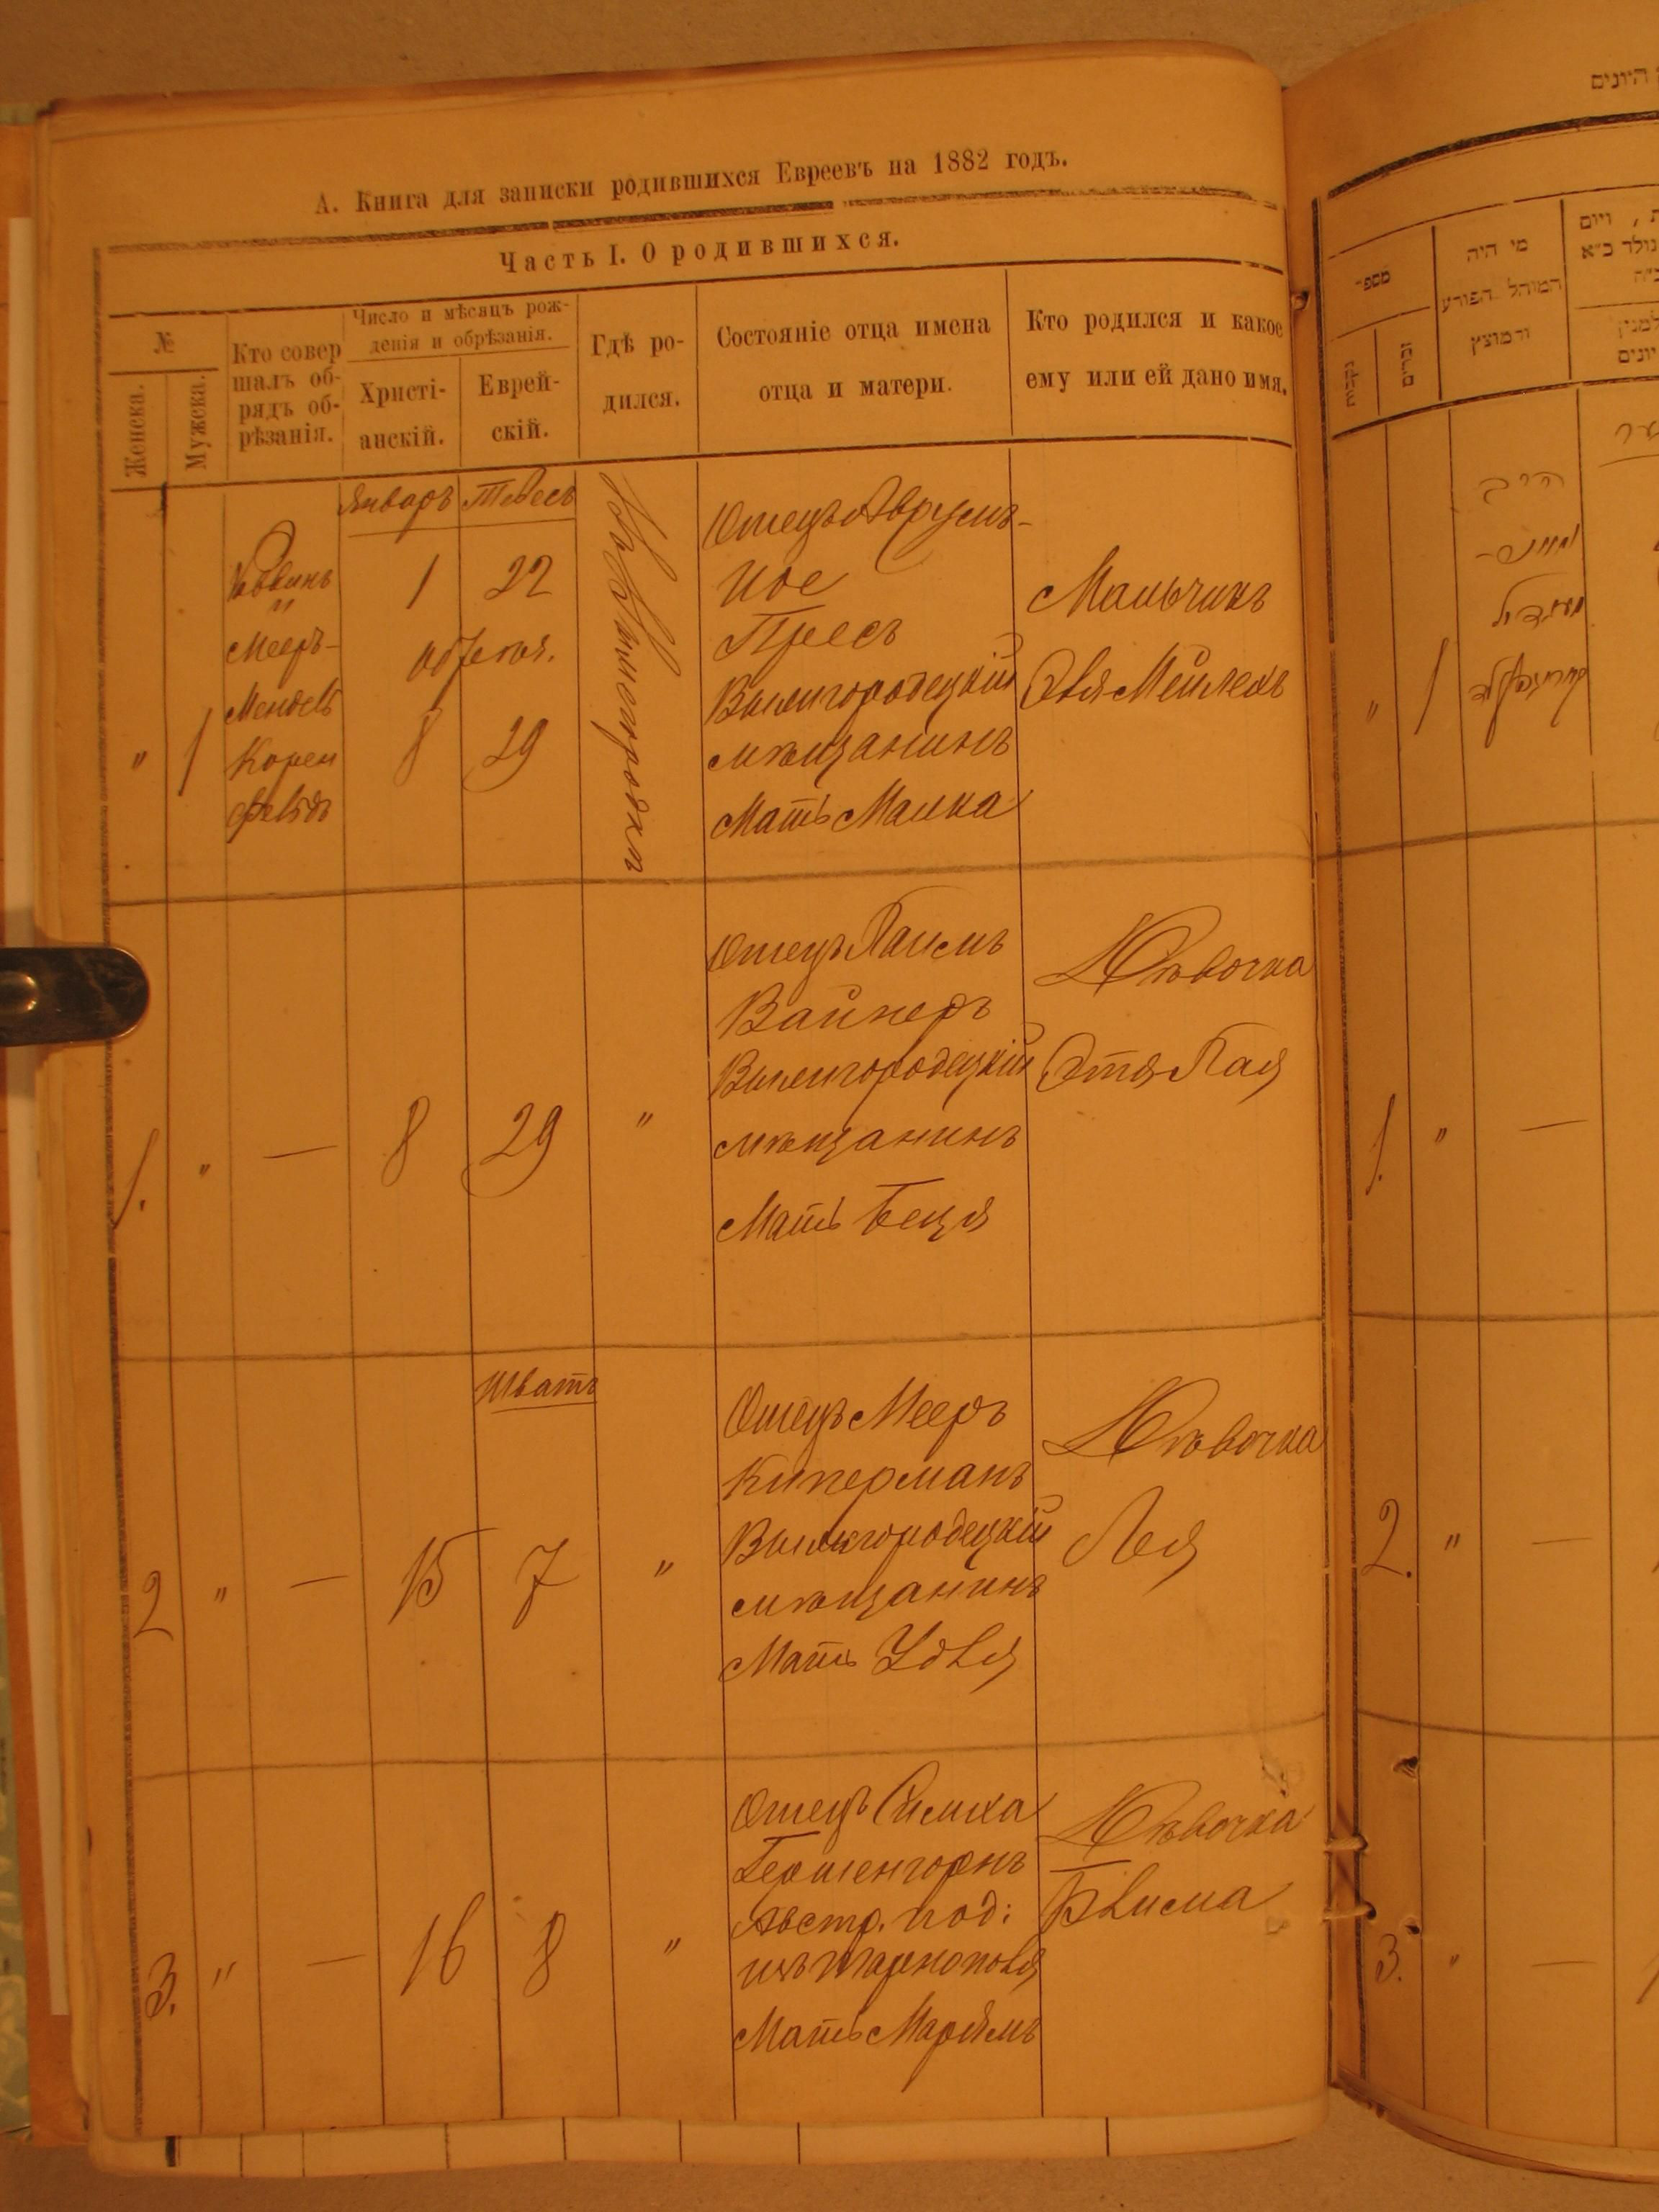 А. Книга для записки родившихся Евреевъ на 1882 годъ.
Часть I. О родившихся.
№
Женска.
Мужска.
Кто совер
шалъ об-
рядъ об-
рѣзанія.
Число и мѣсяцъ рож-
денія и обрѣзанія.
Христі-
анскій.
Еврей-
скій.
Гдѣ ро-
дился.
Состояніе отца имена
отца и матери.
Кто родился и какое
ему или ей дано имя.
Январь
Тебесъ
"
1
Мееръ-
Мендель
Корен
фельдъ
1
22
обрезан.
8
29
Отецъ Аврумъ-
Иос
Пресъ
Вышгородецкій
мѣщанинъ
Мать Малка
Мальчикъ
Эля Мейлехъ
1.
"
—
8
29
"
Отецъ Хаимъ
Вайнеръ
Вышгородецкій
мѣщанинъ
Мать Беця
Дѣвочка
Этя Хая
Шватъ
2
"
—
15
7
"
Отецъ Мееръ
Киперманъ
Вышгородецкій
мѣщанинъ
Мать Удля
Дѣвочка
Лея
3.
"
—
16
8
"
Отецъ Симха
Гершенгорнъ
Австр. под:
изъ Тарнополя
Мать Марьямъ
Дѣвочка
Блима
מספר
נקבות
זכרים
מי היה
המוהל הפורע
והמוצץ
, ויום
נולד כ"א
"
1
1.
"
—
2.
"
—
3.
"
—